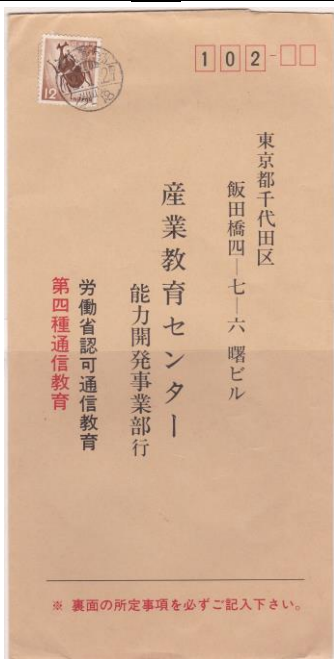 102-
東京都千代田区
飯田橋四—七—六 曙ビル
産業教育センター
能力開発事業部行
労働省認可通信教育
第四種通信教育
※ 裏面の所定事項を必ずご記入下さい。
12